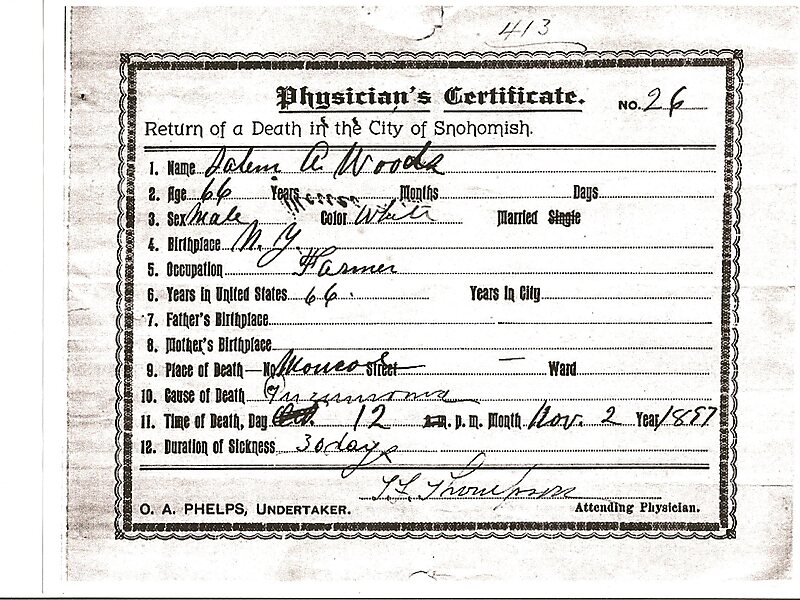 413
Physician's Certificate. NO. 26
Return of a Death in the City of Snohomish.
1. Name Salem A. Woods
2. Age 66 Years Months Days
3. Sex Male Color White Married Single
4. Birthplace N. Y.
5. Occupation Farmer
6. Years in United States 66. Years in City
7. Father's Birthplace
8. Mother's Birthplace
9. Place of Death — No Street — Ward
10. Cause of Death Pneumonia
11. Time of Death, Day Oct. 12 a.m. p. m. Month Nov. 2 Year 1897
12. Duration of Sickness 30 days
Thompson
O. A. PHELPS, UNDERTAKER. Attending Physician.